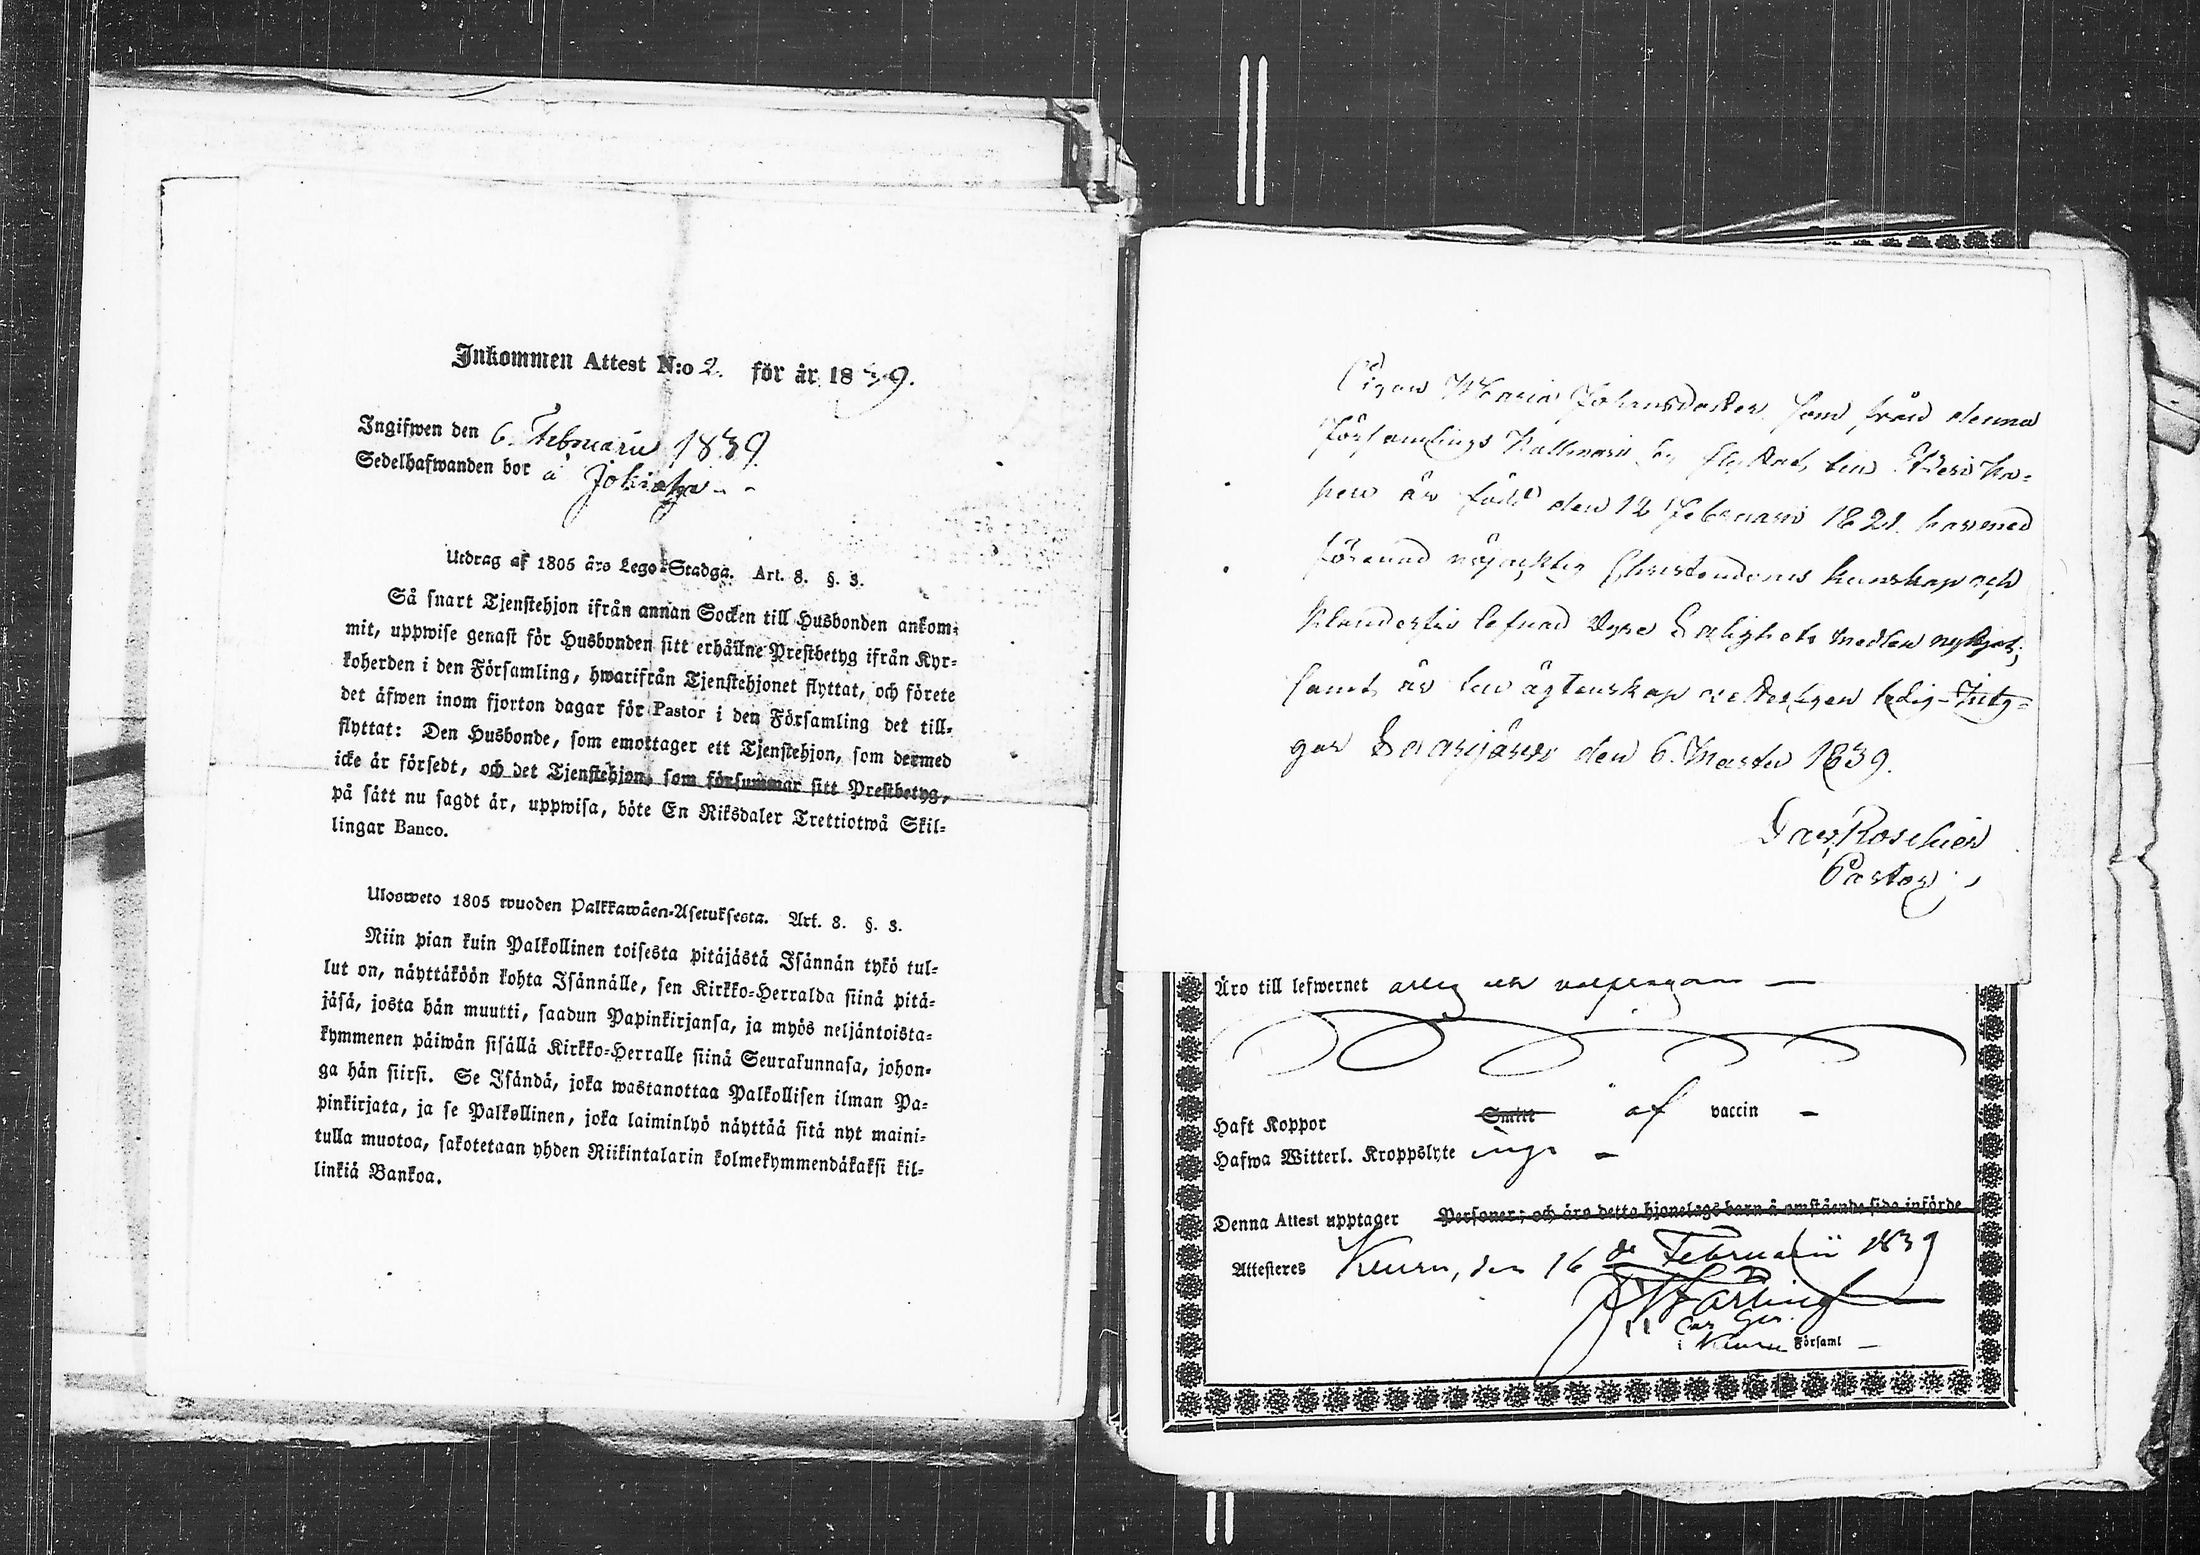 Inkommen Attest N:o 2. för år 1839.
Ingifwen den 6. Februarii 1839.
Sedelhafwanden bor å
Utdrag af 1805 års Lego-Stadga. Art. 8. §. 3.
Så snart Tjenstehjon ifrån annan Socken till Husbonden ankom-
mit, uppwise genast för Husbonden sitt erhållne Prestbetyg ifrån Kyr-
koherden i den Församling, hwarifrån Tjenstehjonet flyttat, och förete
det äfwen inom fjorton dagar för Pastor i den Församling det till-
flyttat: Den Husbonde, som emottager ett Tjenstehjon, som dermed
icke är försedt, och det Tjenstehjon, som försummar sitt Prestbetyg,
på sätt nu sagdt är, uppwisa, böte En Riksdaler Trettiotwå Skil-
lingar Banco.
Ulosweto 1805 wuoden Palkkawäen-Asetuksesta. Art. 8. §. 3.
Niin pian kuin Palkollinen toisesta pitäjästä Isännän tykö tul-
lut on, näyttäköön kohta Isännälle, sen Kirkko-Herralda siinä pitä-
jäsä, josta hän muutti, saadun Papinkirjansa, ja myös neljäntoista-
kymmenen päiwän sisällä Kirkko-Herralle siinä Seurakunnasa, johon-
ga hän siirsi. Se Isändä, joka wastanottaa Palkollisen ilman Pa-
pinkirjata, ja se Palkollinen, joka laiminlyö näyttää sitä nyt maini-
tulla muotoa, sakotetaan yhden Riikintalarin kolmekymmendäkaksi kil-
linkiä Bankoa.
Pigan Maria Johansdotter som från denna
församlings
är född den 12 Februarii 1821. har med
försvarlig Christendoms kunskap och
lefnad Salighets medlen nyttjat,
samt är till ägtenskap ledig Inty-
gar Saarijärvi den 6. Martii 1839.
Roschier
Pastor
Äro till lefwernet ärlig och välfrägdad
Haft Koppor Smitt af vaccin
Hafwa Witterl. Kroppslyte inga
Denna Attest upptager Personer; och äro detta hjonelags barn å omstående sida införde
Attesteres Keuru, den 16 de Februarii 1839
i Keuru Församl